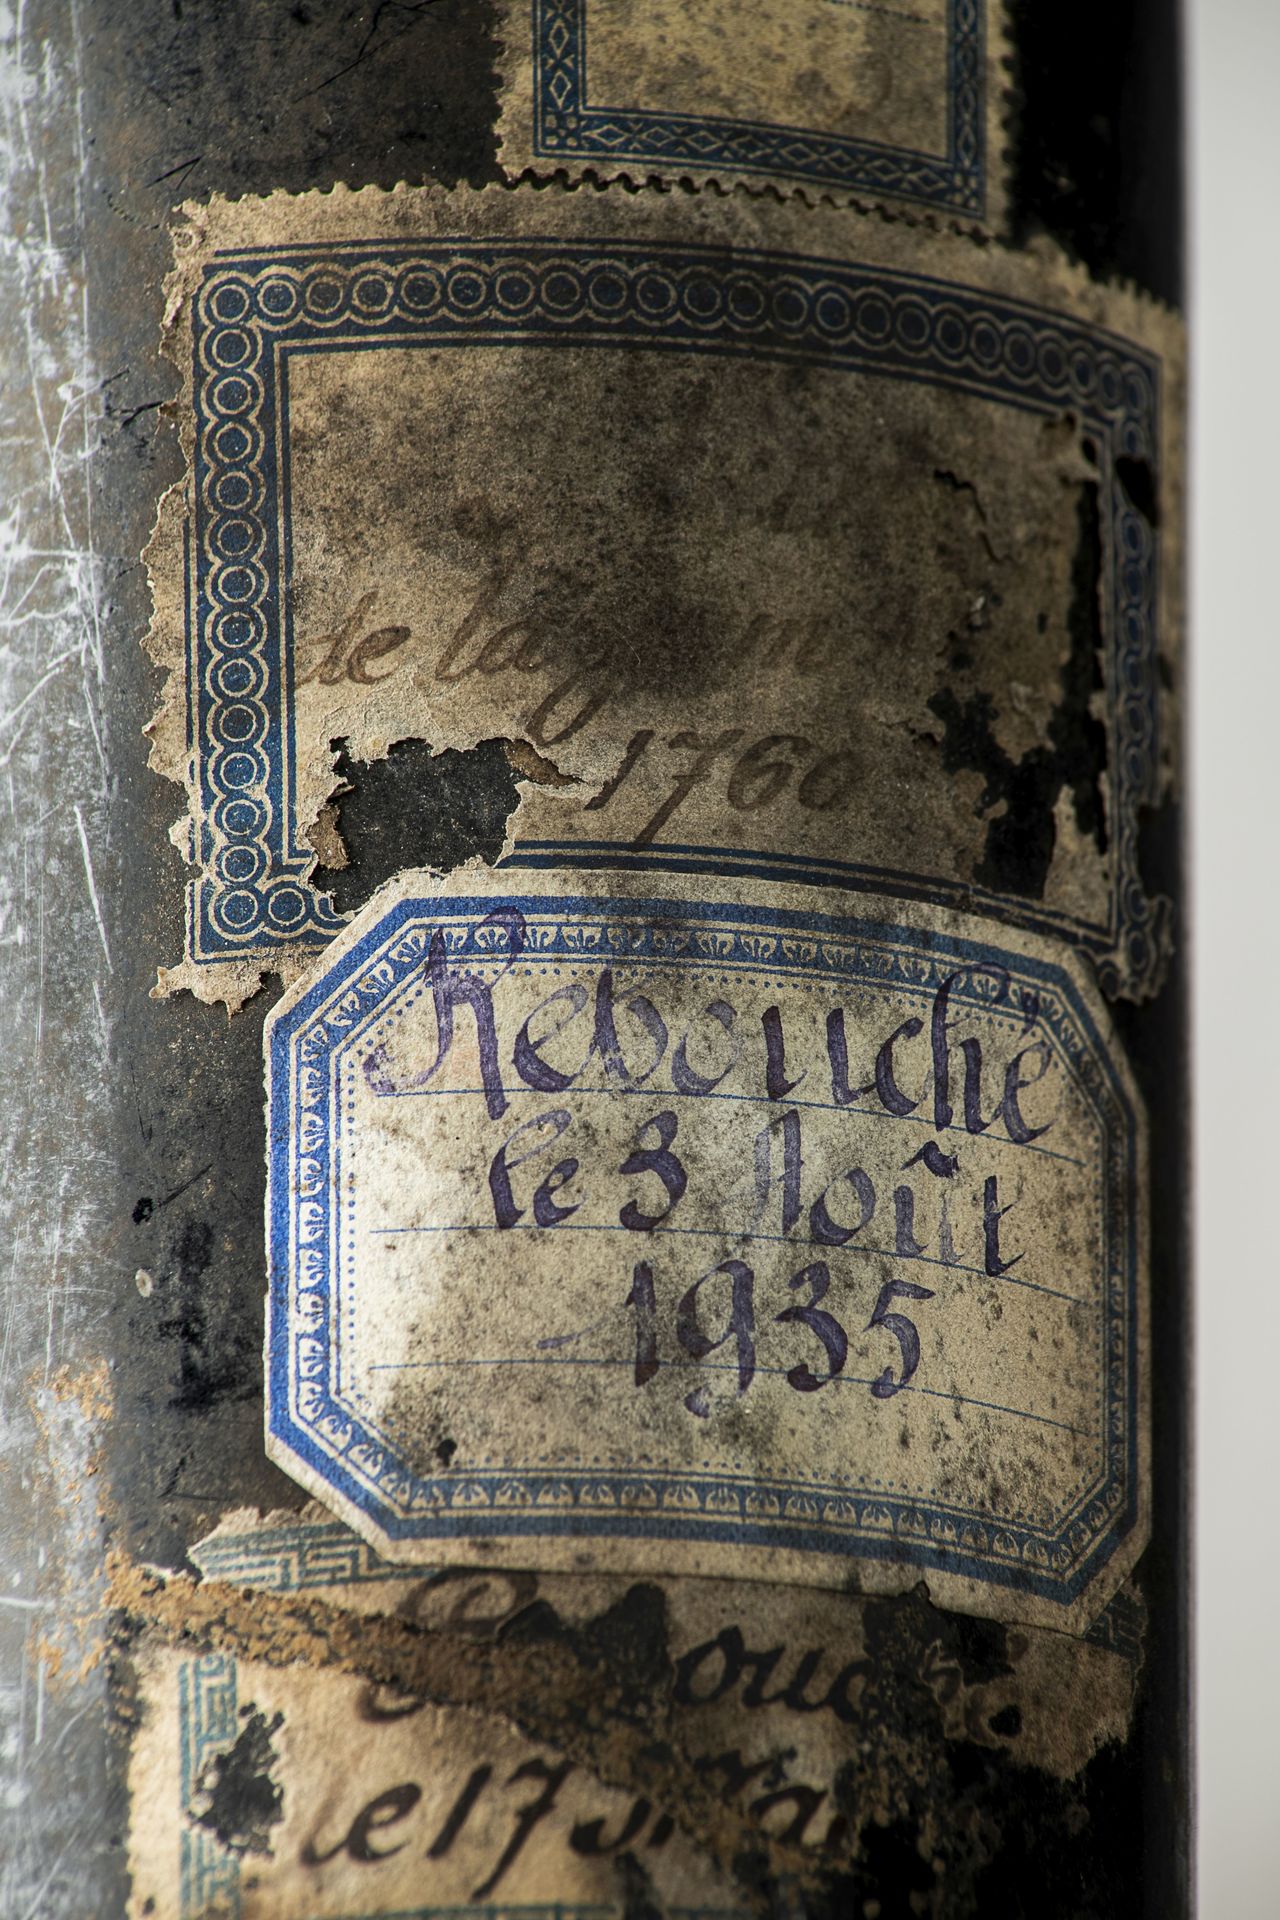 de la
1760
Rebouché
le 3 Août
1935
le 17